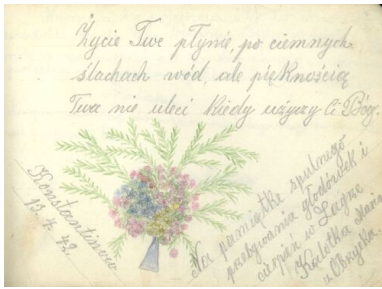 Życie Twe płynie, po ciemnych
ślachach wód, ale pięknością
Twa nie uleci kiedy użyczy Ci Bóg.
Konstantinow
13. 4. 42.
Na pamiątkę spulnego
przebywania głodówek i
cierpień w Lagrze
Kubotka Maria
z Obrzycka.